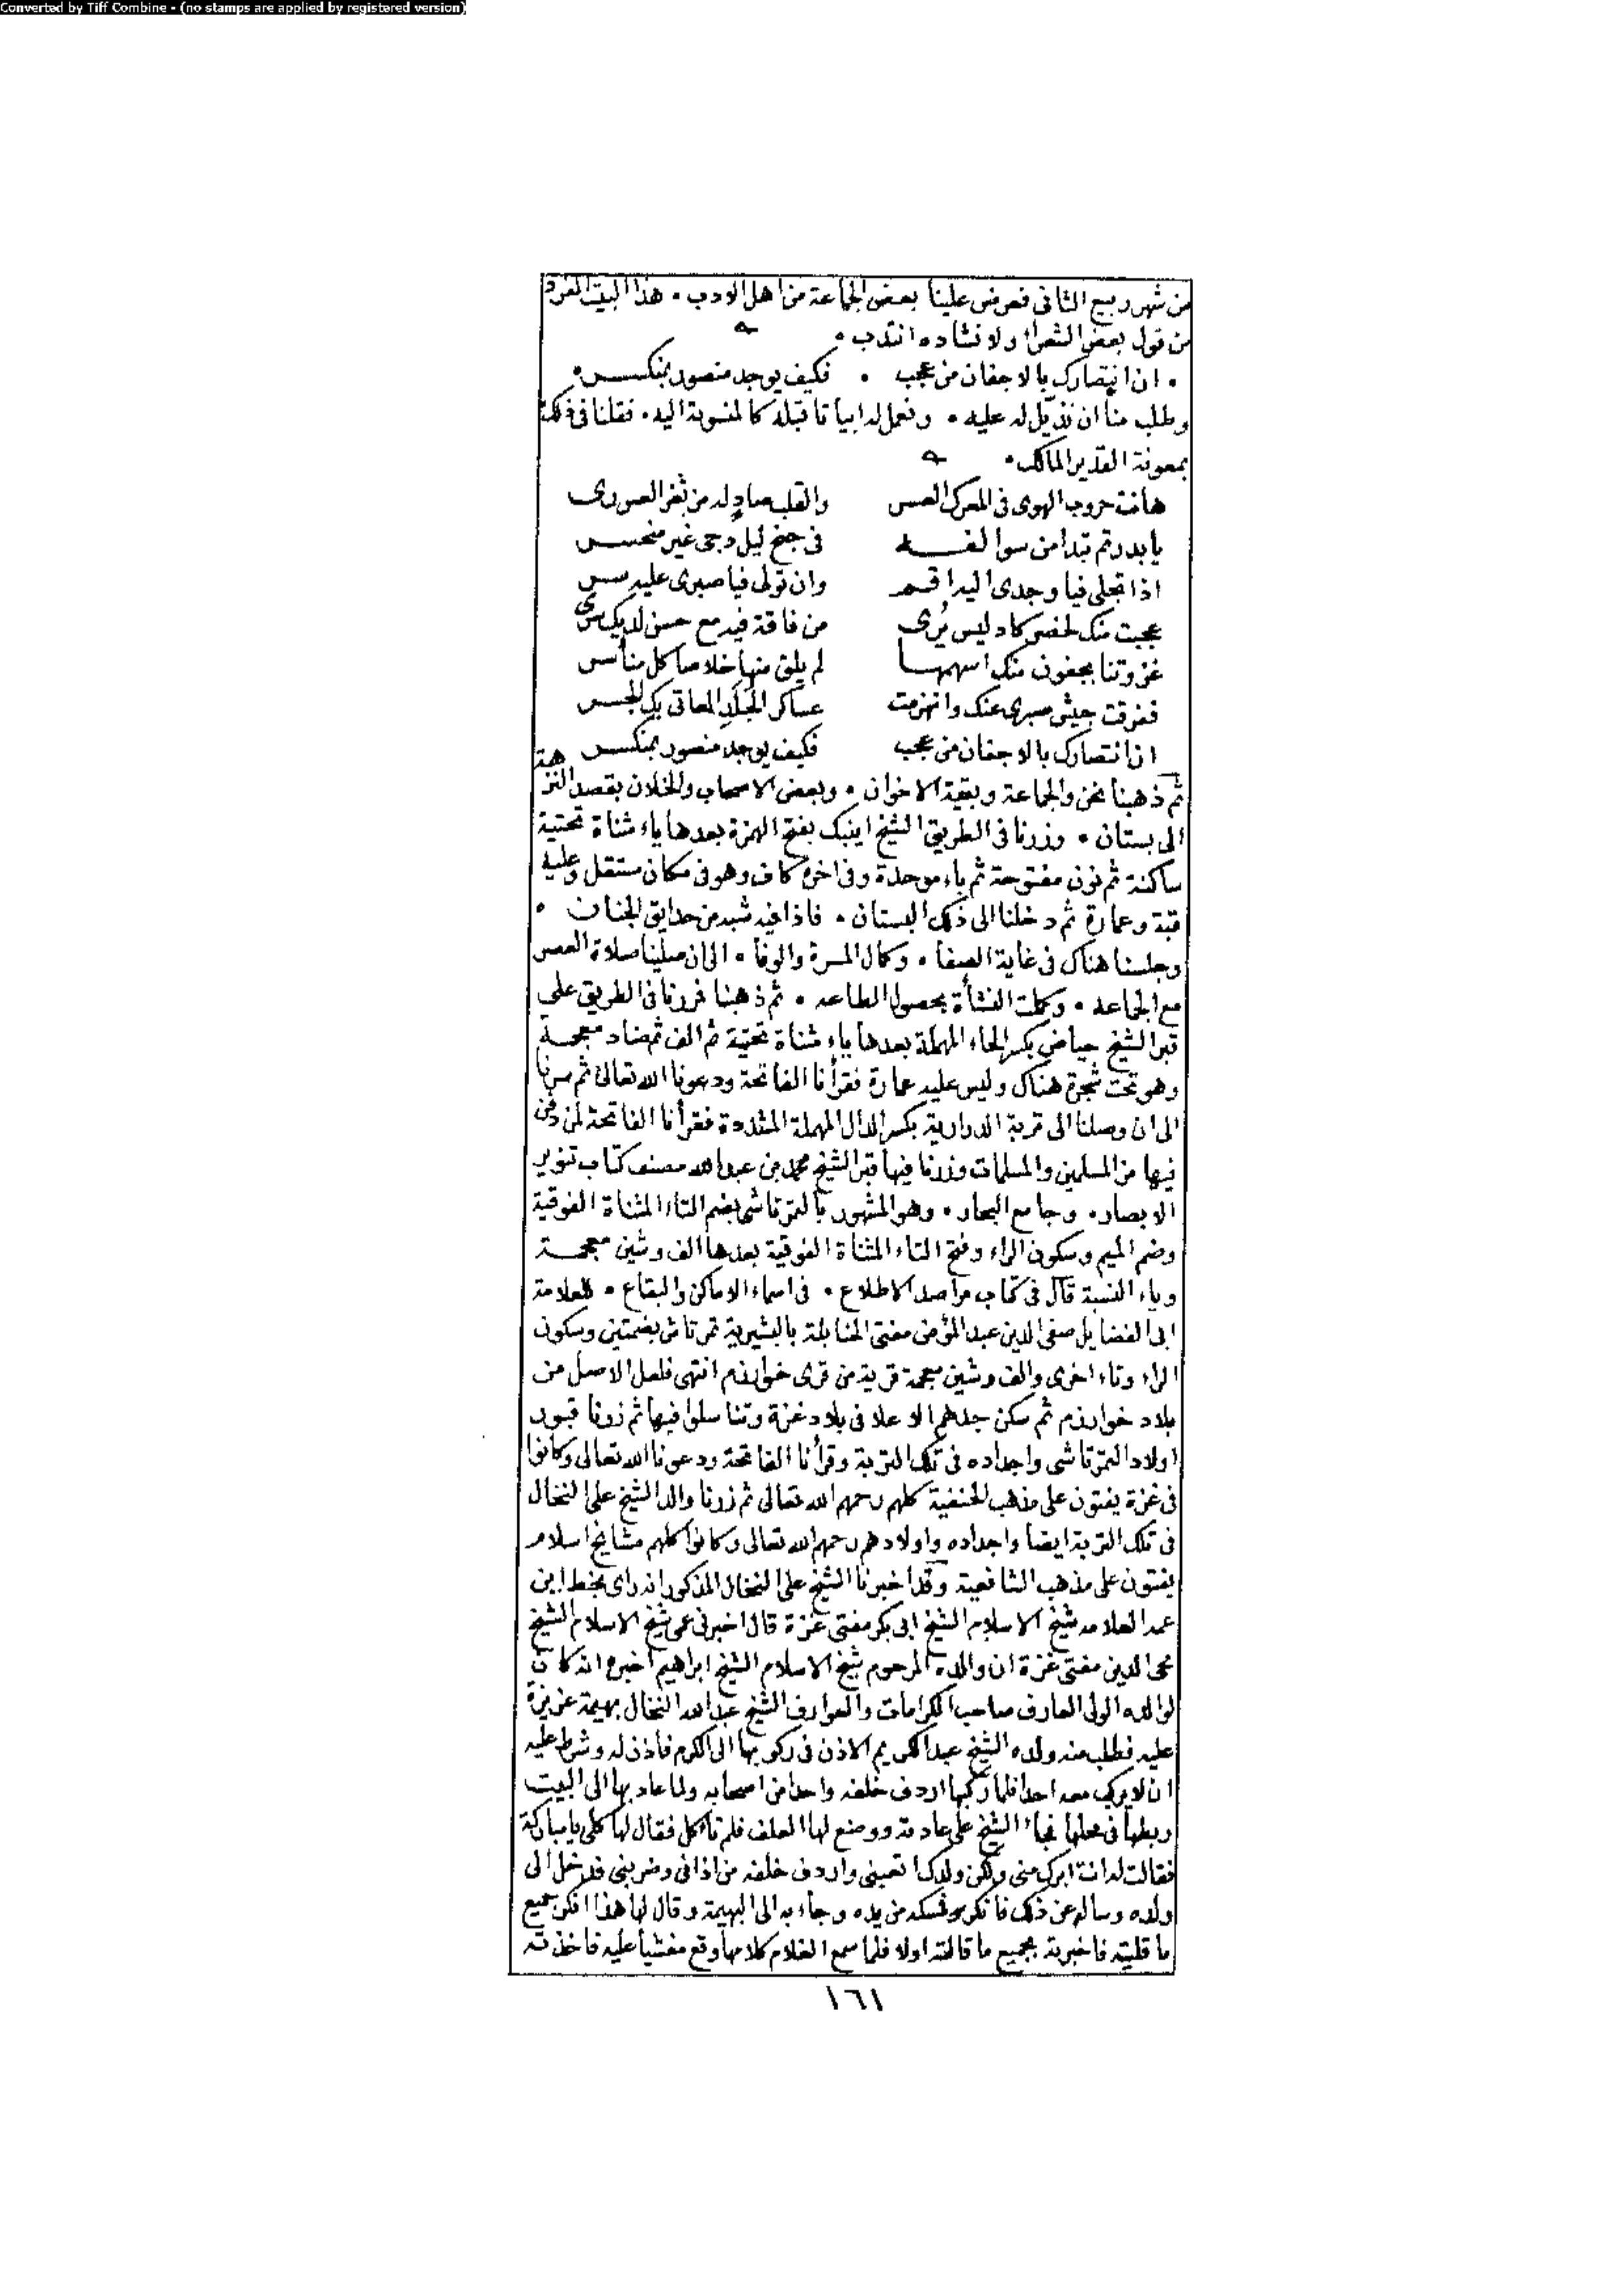 Converted by Tiff Combine - (no stamps are applied by registered version)
من شهر ربيع الثانى فعرض علينا بعض الجماعة من اهل الادب • هذا البيت المفرد
من قول بعض الشعراء ولانشاده انتدب •
• ان انتصارك بالاجفان من عجب • فكيف يوجد منصور بمنكسر •
وطلب منا ان نذيّل له عليه • ونعمل له ابياتا قبله كالمنسوبة اليه • فقلنا فى ذلك
بمعونة القدير المالك •
هانت حروب الهوى فى المعرك العسر والقلب صادٍ له من ثغر
يا بدر تم تبدا من سوالفه فى جنح ليل دجى غير منحسر
اذا تجلى فيا وجدى اليه اقم وان تولى فيا صبرى عليه سر
عجبت منك لخصر كاد ليس يُرى من فاقة فيه مع حسن لديك
غزوتنا بجفون منك اسهمها لم يلق منها خلاصا كل
ففرقت جيش صبرى عنك وانهزمت عساكر الجَلَدِ
ان انتصارك بالاجفان من عجب فكيف يوجد منصور بمنكسر
ثم ذهبنا نحن والجماعة وبقية الاخوان • وبعض الاصحاب والخلان بقصد النزهة
الى بستان • وزرنا فى الطريق الشيخ اينبك بفتح الهمزة بعدها ياء مثناة تحتية
ساكنة ثم نون مفتوحة ثم باء موحدة وفى اخره كاف وهو فى مكان مستقل وعليه
قبة وعمارة ثم دخلنا الى ذلك البستان • فاذا فيه شبه من حدايق الجنان •
وجلسنا هناك فى غاية الصفا • وكمال المسرة والوفا • الى ان صلينا صلاة العصر
مع الجماعه • وكملت النشأة بحصول الطاعه • ثم ذهبنا فزرنا فى الطريق على
قبر الشيخ حياض بكسر الحاء المهملة بعدها ياء مثناة تحتية ثم الف ثم ضاد معجمة
وهو تحت شجرة هناك وليس عليه عمارة فقرأنا الفاتحة ودعونا الله تعالى ثم سرنا
الى ان وصلنا الى تربة الدرارية بكسر الدال المهملة المشددة فقرأنا الفاتحة لمن دفن
فيها من المسلمين والمسلمات وزرنا فيها قبر الشيخ محمد بن عبد الله مصنف كتاب تنوير
الابصار • وجامع البحار • وهو المشهور بالتمرتاشى بضم التاء المثناة الفوقية
وضم الميم وسكون الراء وفتح التاء المثناة الفوقية بعدها الف وشين معجمة
وياء النسبة قال فى كتاب مراصد الاطلاع • فى اسماء الاماكن والبقاع • للعلامة
ابى الفضايل صفى الدين عبد المؤمن مفتى الحنابلة بالبشيرية تمرتاش بضمتين وسكون
الراء وتاء اخرى والف وشين معجمة قرية من قرى خوارزم انتهى فلعل الاصل من
بلاد خوارزم ثم سكن جدهم الاعلا فى بلاد غزة وتناسلوا فيها ثم زرنا قبور
اولاد التمرتاشى واجداده فى تلك التربة وقرأنا الفاتحة ودعونا الله تعالى وكانوا
فى غزة يفتون على مذهب الحنفية كلهم رحمهم الله تعالى ثم زرنا والد الشيخ على النخال
فى تلك التربة ايضا واجداده واولادهم رحمهم الله تعالى وكانوا كلهم مشايخ اسلام
يفتون على مذهب الشافعية وقد اخبرنا الشيخ على النخال المذكور انه راى بخط ابن
عمه العلامه شيخ الاسلام الشيخ ابى بكر مفتى غزة قال اخبرنى عمى شيخ الاسلام الشيخ
محى الدين مفتى غزة ان والده المرحوم شيخ الاسلام الشيخ ابراهيم اخبره انه كان
لوالده الولى العارف صاحب الكرامات والعوارف الشيخ عبد الله النخال بهيمة عزيزة
عليه فطلب منه ولده الشيخ عبد الكريم الاذن فى ركوبها الى الكرم فاذن له وشرط عليه
ان لا يركب معه احدا فلما ركبها اردف خلفه واحدا من اصحابه ولما عاد بها الى البيت
ربطها فى محلها فجاء الشيخ على عادته ووضع لها العلف فلم تأكل فقال لها كلى يا مباركة
فقالت له انت ابرك منى ولكن ولدك اتعبنى واردف خلفه من اذانى وضربنى فدخل الى
ولده وساله عن ذلك فانكر فمسكه من يده وجاء به الى البهيمة وقال لها هذا انكر جميع
ما قلتيه فاخبرته بجميع ما قالته اولا فلما سمع الغلام كلامها وقع مغشيا عليه فاخذته
١٦١